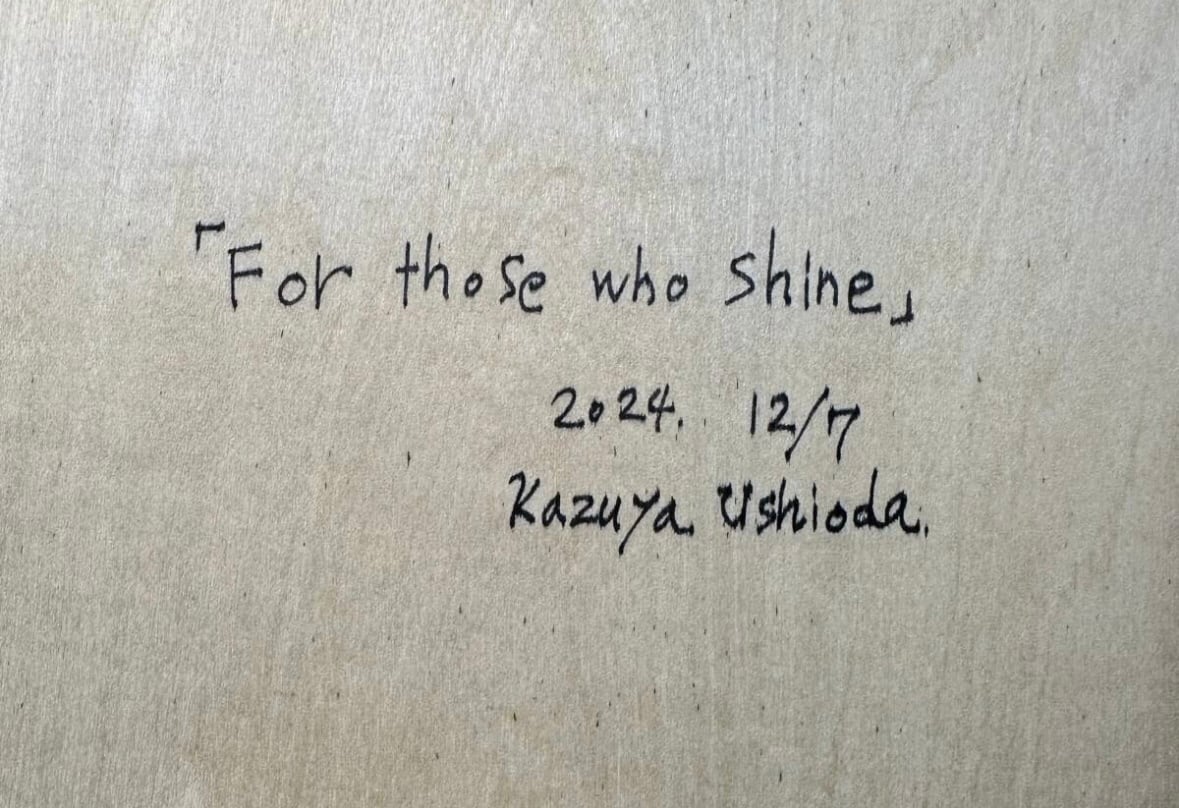 「For those who shine」
2024. 12/7
Kazuya Ushioda.